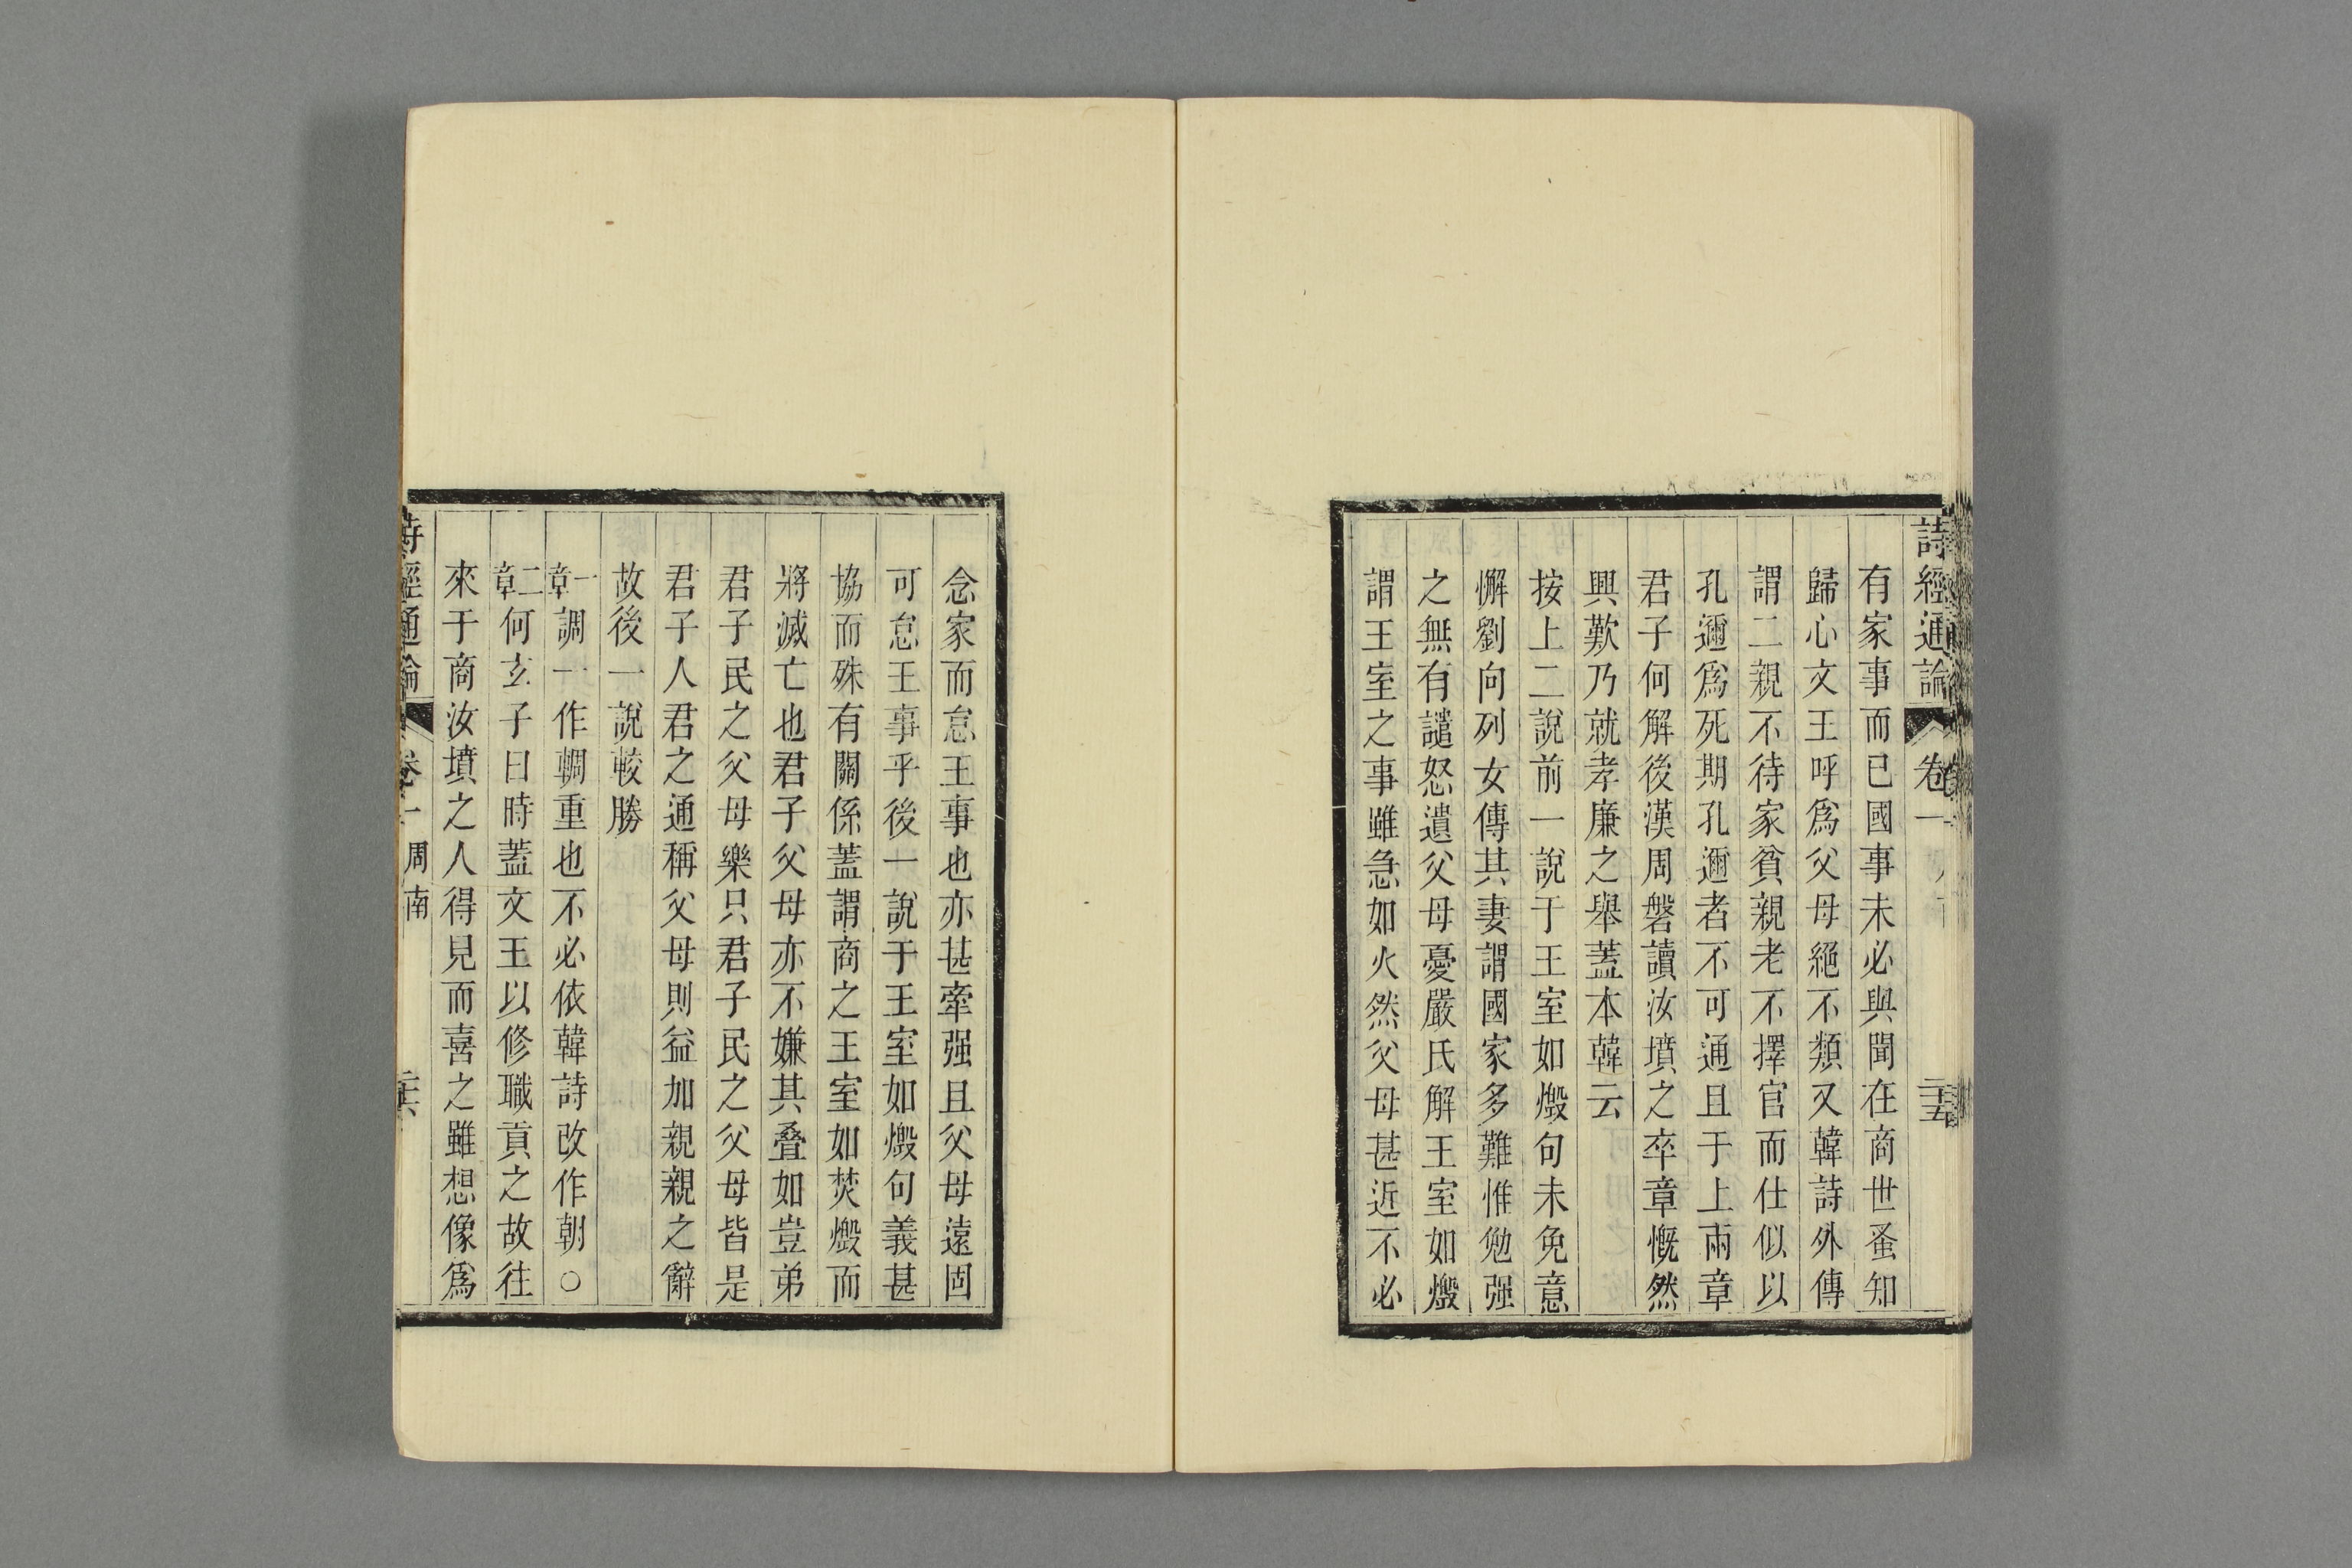 詩經通論 卷一 二十五
有家事而已國事未必與聞在商世蚤知
歸心文王呼爲父母絕不類又韓詩外傳
謂二親不待家貧親老不擇官而仕似以
孔邇爲死期孔邇者不可通且于上兩章
君子何解後漢周磐讀汝墳之卒章慨然
興歎乃就孝廉之舉蓋本韓云
按上二說前一說于王室如燬句未免意
懈劉向列女傳其妻謂國家多難惟勉强
之無有譴怒遺父母憂嚴氏解王室如燬
謂王室之事雖急如火然父母甚近不必
念家而怠王事也亦甚牽强且父母遠固
可怠王事乎後一說于王室如燬句義甚
協而殊有關係蓋謂商之王室如焚燬而
將滅亡也君子父母亦不嫌其叠如豈弟
君子民之父母樂只君子民之父母皆是
君子人君之通稱父母則益加親親之辭
故後一說較勝
一章調一作輖重也不必依韓詩改作朝○
二章何玄子曰時蓋文王以修職貢之故往
來于商汝墳之人得見而喜之雖想像爲
詩經通論 卷一 周南 二十六